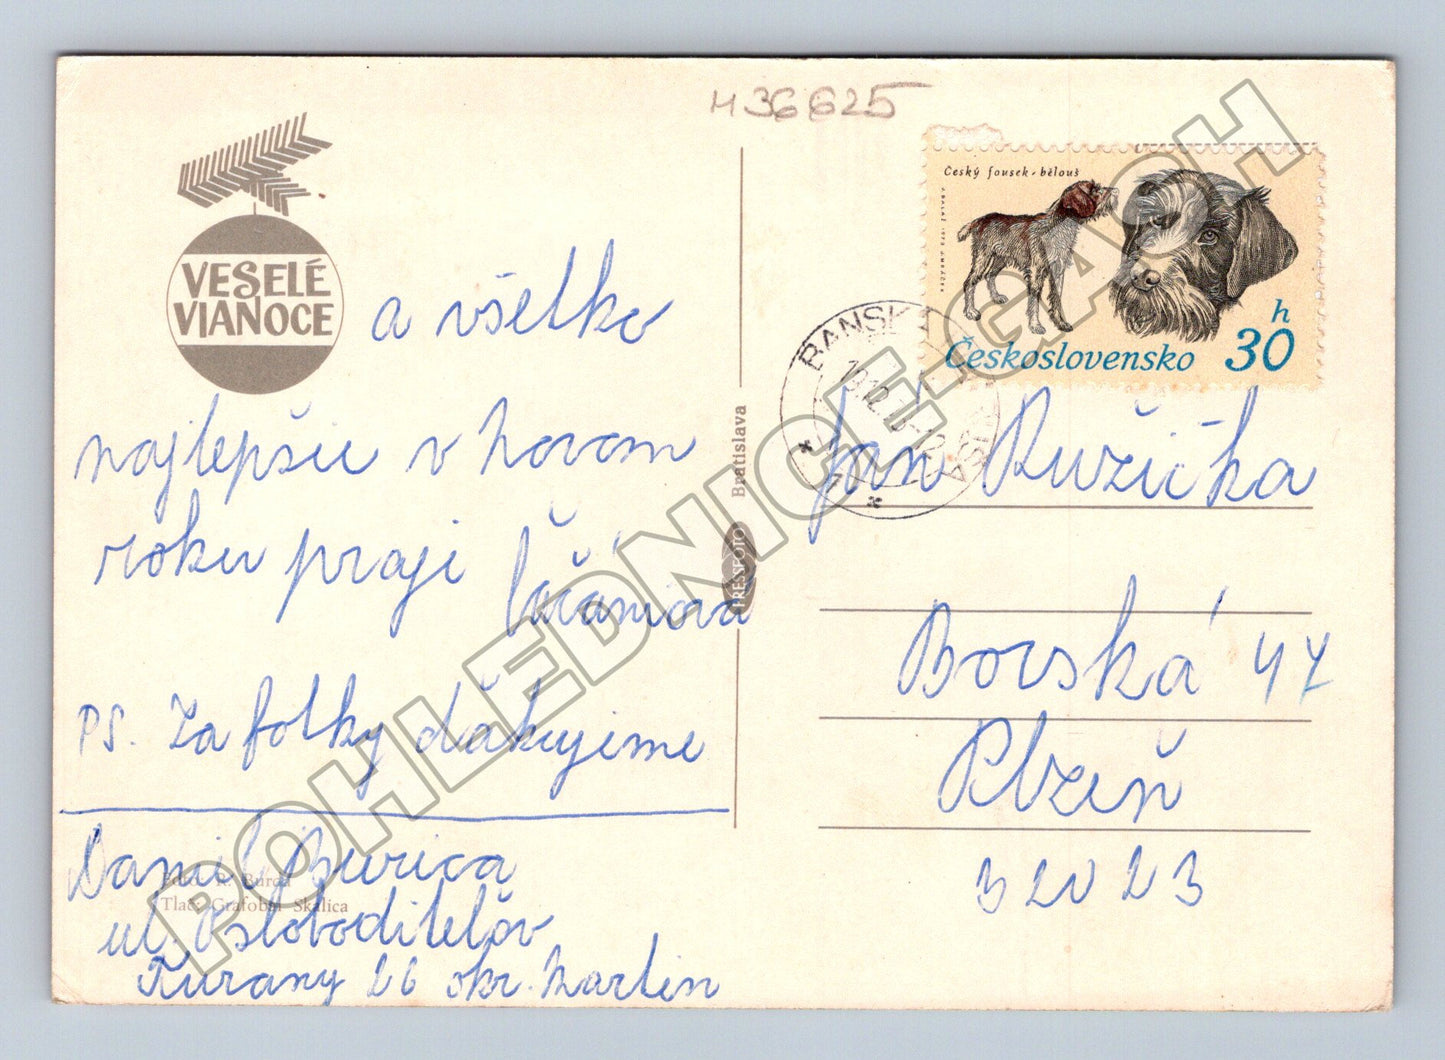 H36625
VESELÉ
VIANOCE
a všetko
najlepšie v novom
roku praji
PS. Za fotky děkujeme
Daniel
ul. Osloboditelov
Turany 26 okr. Martin
Foto: K. Burda
Tlač: Grafobal Skalica
Bratislava
PRESSFOTO
Český fousek - bělouš
Československo 30 h
BANSKÁ
Ján Ružička
Borská 47
Plzeň
32023
POHLEDNICE-GASH